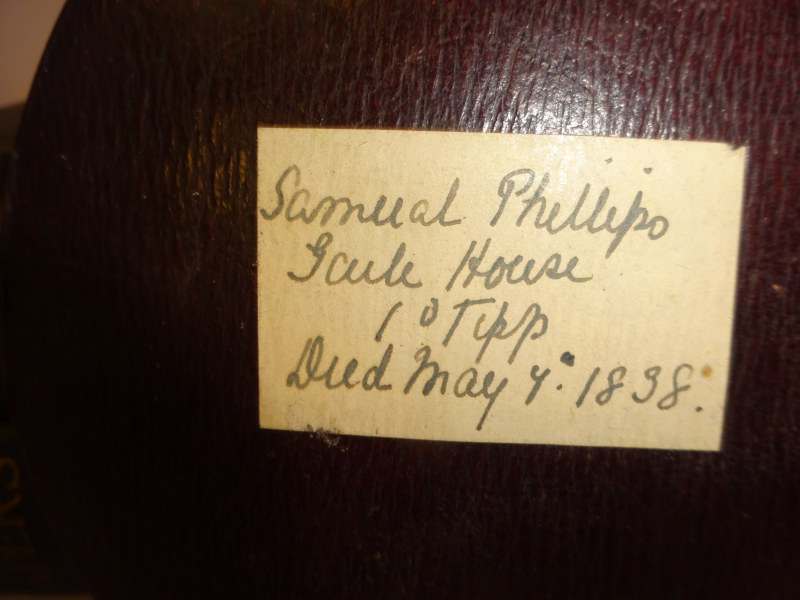 Samueal Phillips
Gaile House
Tipp
Died May 4. 1838.